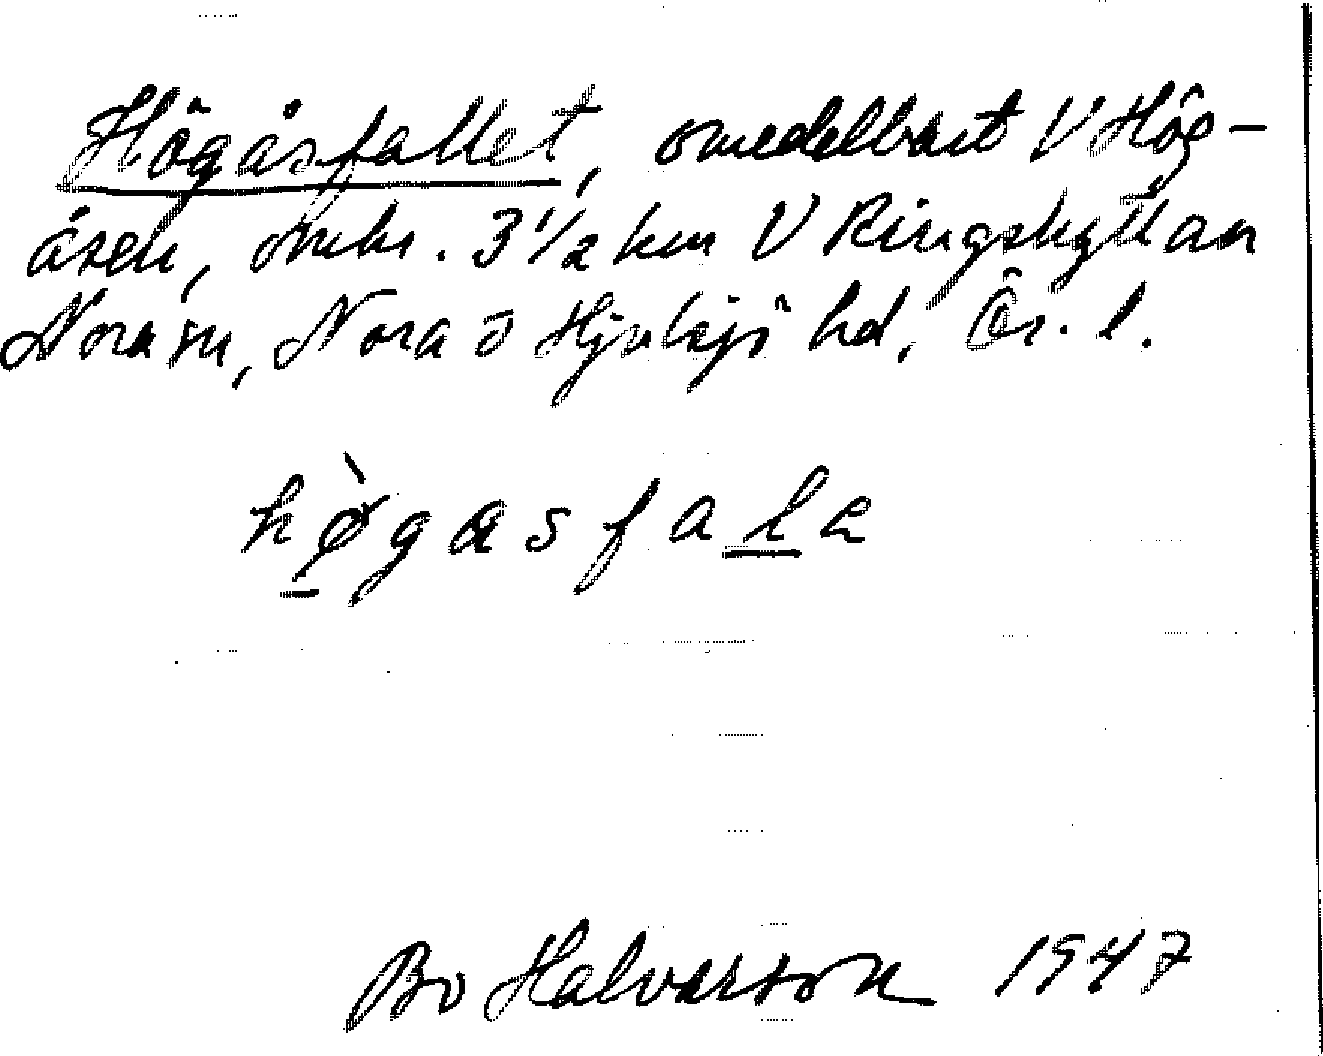 Högåsfallet, omedelbart V Hög-
åsen, omkr. 3 1/2 km V Ringshyttan
Nora sn, Nora o Hjulsjö hd, Ör. l.
hø̀gasfala
Bo Halvarson 1947